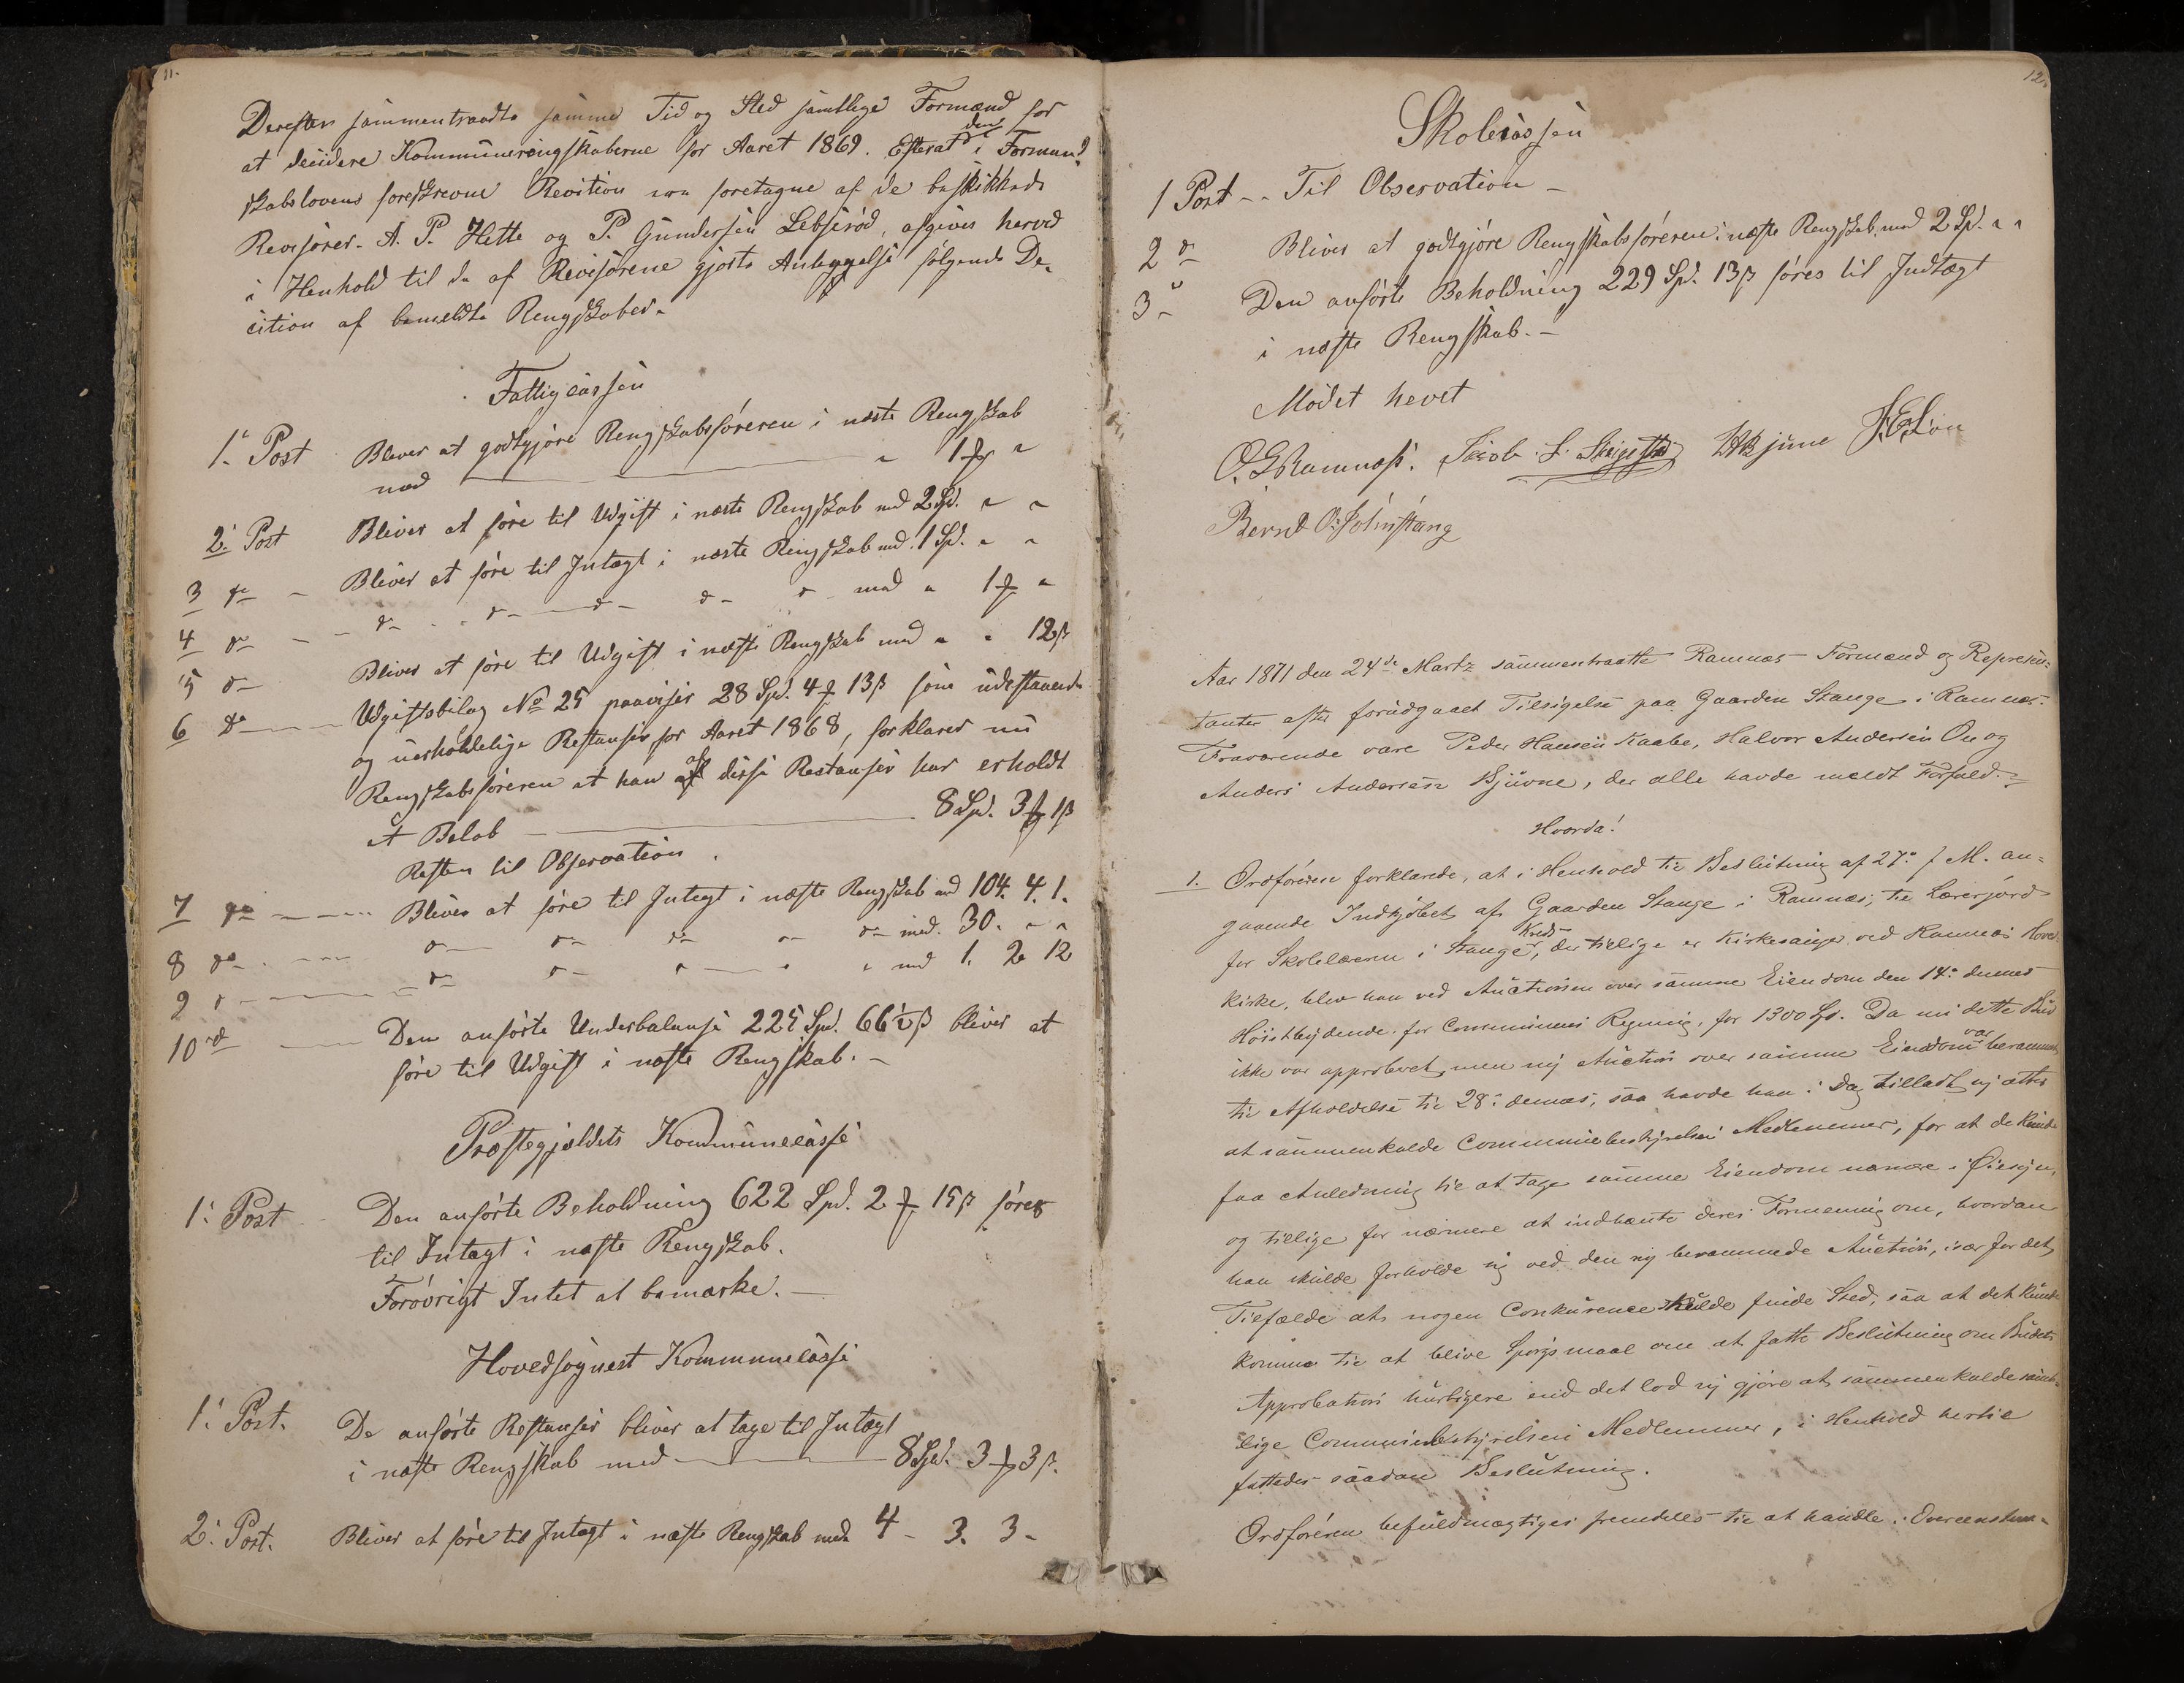 11.
Derefter sammentraadte samme Tid og Sted samtlige Formænd for
at decidere Kommuneregnskaberne for Aaret 1869. Efterat den i Formand
skabslovens foreskrevne Revition var foretagne af de beskikkede
Revisorer. A. P. Hette og P. Gundersen Lebsjerød, afgives herved
i Henhold til de af Revisorene gjorte Antegnelse følgende De-
cition af bemeldte Rengskaber.
Fattigcassen
1. Post Bliver at godtgjøre Rengskabsføreren i næste Rengskab
med " 1 ƒ "
2. Post Bliver at føre til Udgift i næste Rengskab med 2 Spd. " "
3 do - Bliver at føre til Intægt i næste Rengskab med 1 Spd. " "
4 do - - do - - do - do - do do - med " 1 ƒ "
5 do Bliver at føre til Udgift i næste Rengskab med " " 12 ß
6 do Udgiftsbilag No 25 paaviser 28 Spd. 4 ƒ 13 ß som udestaaende
og uerholdelige Restanser for Aaret 1868, forklarer nu
Rengskabsføreren at han af disse Restanser har erholdt
et Beløb 8 Spd. 3 ƒ 1 ß
Resten til Observation.
7 do Bliver at føre til Intægt i næste Rengskab med 104. 4. 1.
8 do do do do do do med. 30. " "
9 do do do do " " med 1. 2 12
10 do Den anførte Underbalanse 225 Spd. 66 1/2 ß bliver at
føre til Udgift i næste Rengskab. -
Præstegjældets Kommunecasse
1. Post Den anførte Beholdning 622 Spd. 2 ƒ 15 ß føres
til Intægt i næste Rengskab.
Forøvrigt Intet at bemærke. -
Hovedsognest Kommunecasse
1. Post. De anførte Restanser bliver at tage til Intægt
i næste Rengskab med 8 Spd. 3 ƒ 3 ß.
2. Post. Bliver at føre til Intægt i næste Rengskab med 4 - 3. 3 -
12.
Skolecassen
1 Post - - Til Observation -
2 do Bliver at godtgjøre Rengskabsføreren i næste Rengskab med 2 Spd. " "
3 - Den anførte Beholdning 229 Spd. 13 ß føres til Indtægt
i næste Rengskab. -
Mødet hevet
O. G. Ramnæs. Jacob L. Skjeggestad
Bernt O. Solmstang
Aar 1871 den 24de Martz sammentraatte Ramnæs Formænd og Represen-
tanter efter forudgaaet Tilsigelse paa Gaarden Stange i Ramnæs.
Fraværende vare Peder Hansen Kaabe, Halvor Andersen On og
Anders Andersen Bjuvne, der alle havde meldt Forfald. -
Hvorda!
1. Ordføreren forklarede, at i Henhold til Beslutning af 27. f. M. an-
gaaende Indkjøbet af Gaarden Stange i Ramnæs, til Lærerjord
for Skolelæreren i Stange Kreds, der tillige er Kirkesanger ved Ramnæs Hoved
kirke, blev han ved Auctionen over samme Eiendom den 14. dennes
Høistbydende for Communens Regning, for 1300 Spd. Da nu dette Bud
ikke var approberet, men ny Auction over samme Eiendom var berammet
til Afholdelse til 28. dennes, saa havde han i Dag tilladt sig atter
at sammenkalde Communebestyrelsens Medlemmer, for at de kunde
faa Anledning til at tage samme Eiendom nærmere i Øiesyn,
og tillige for nærmere at indhente deres Formening om, hvordan
han skulde forholde sig ved den ny berammede Auction, især for det
Tilfælde at nogen Conkurence skulde finde Sted, saa at det kunde
komme til at blive Spørgsmaal om at fatte Beslutning om Budets
Approbation hurtigere end det lod sig gjøre at sammenkalde samt-
lige Communebestyrelsens Medlemmer, i Henhold hertil
fattedes saadan Beslutning.
Ordføreren befuldmægtiges fremdeles til at handle i Overeenstem-